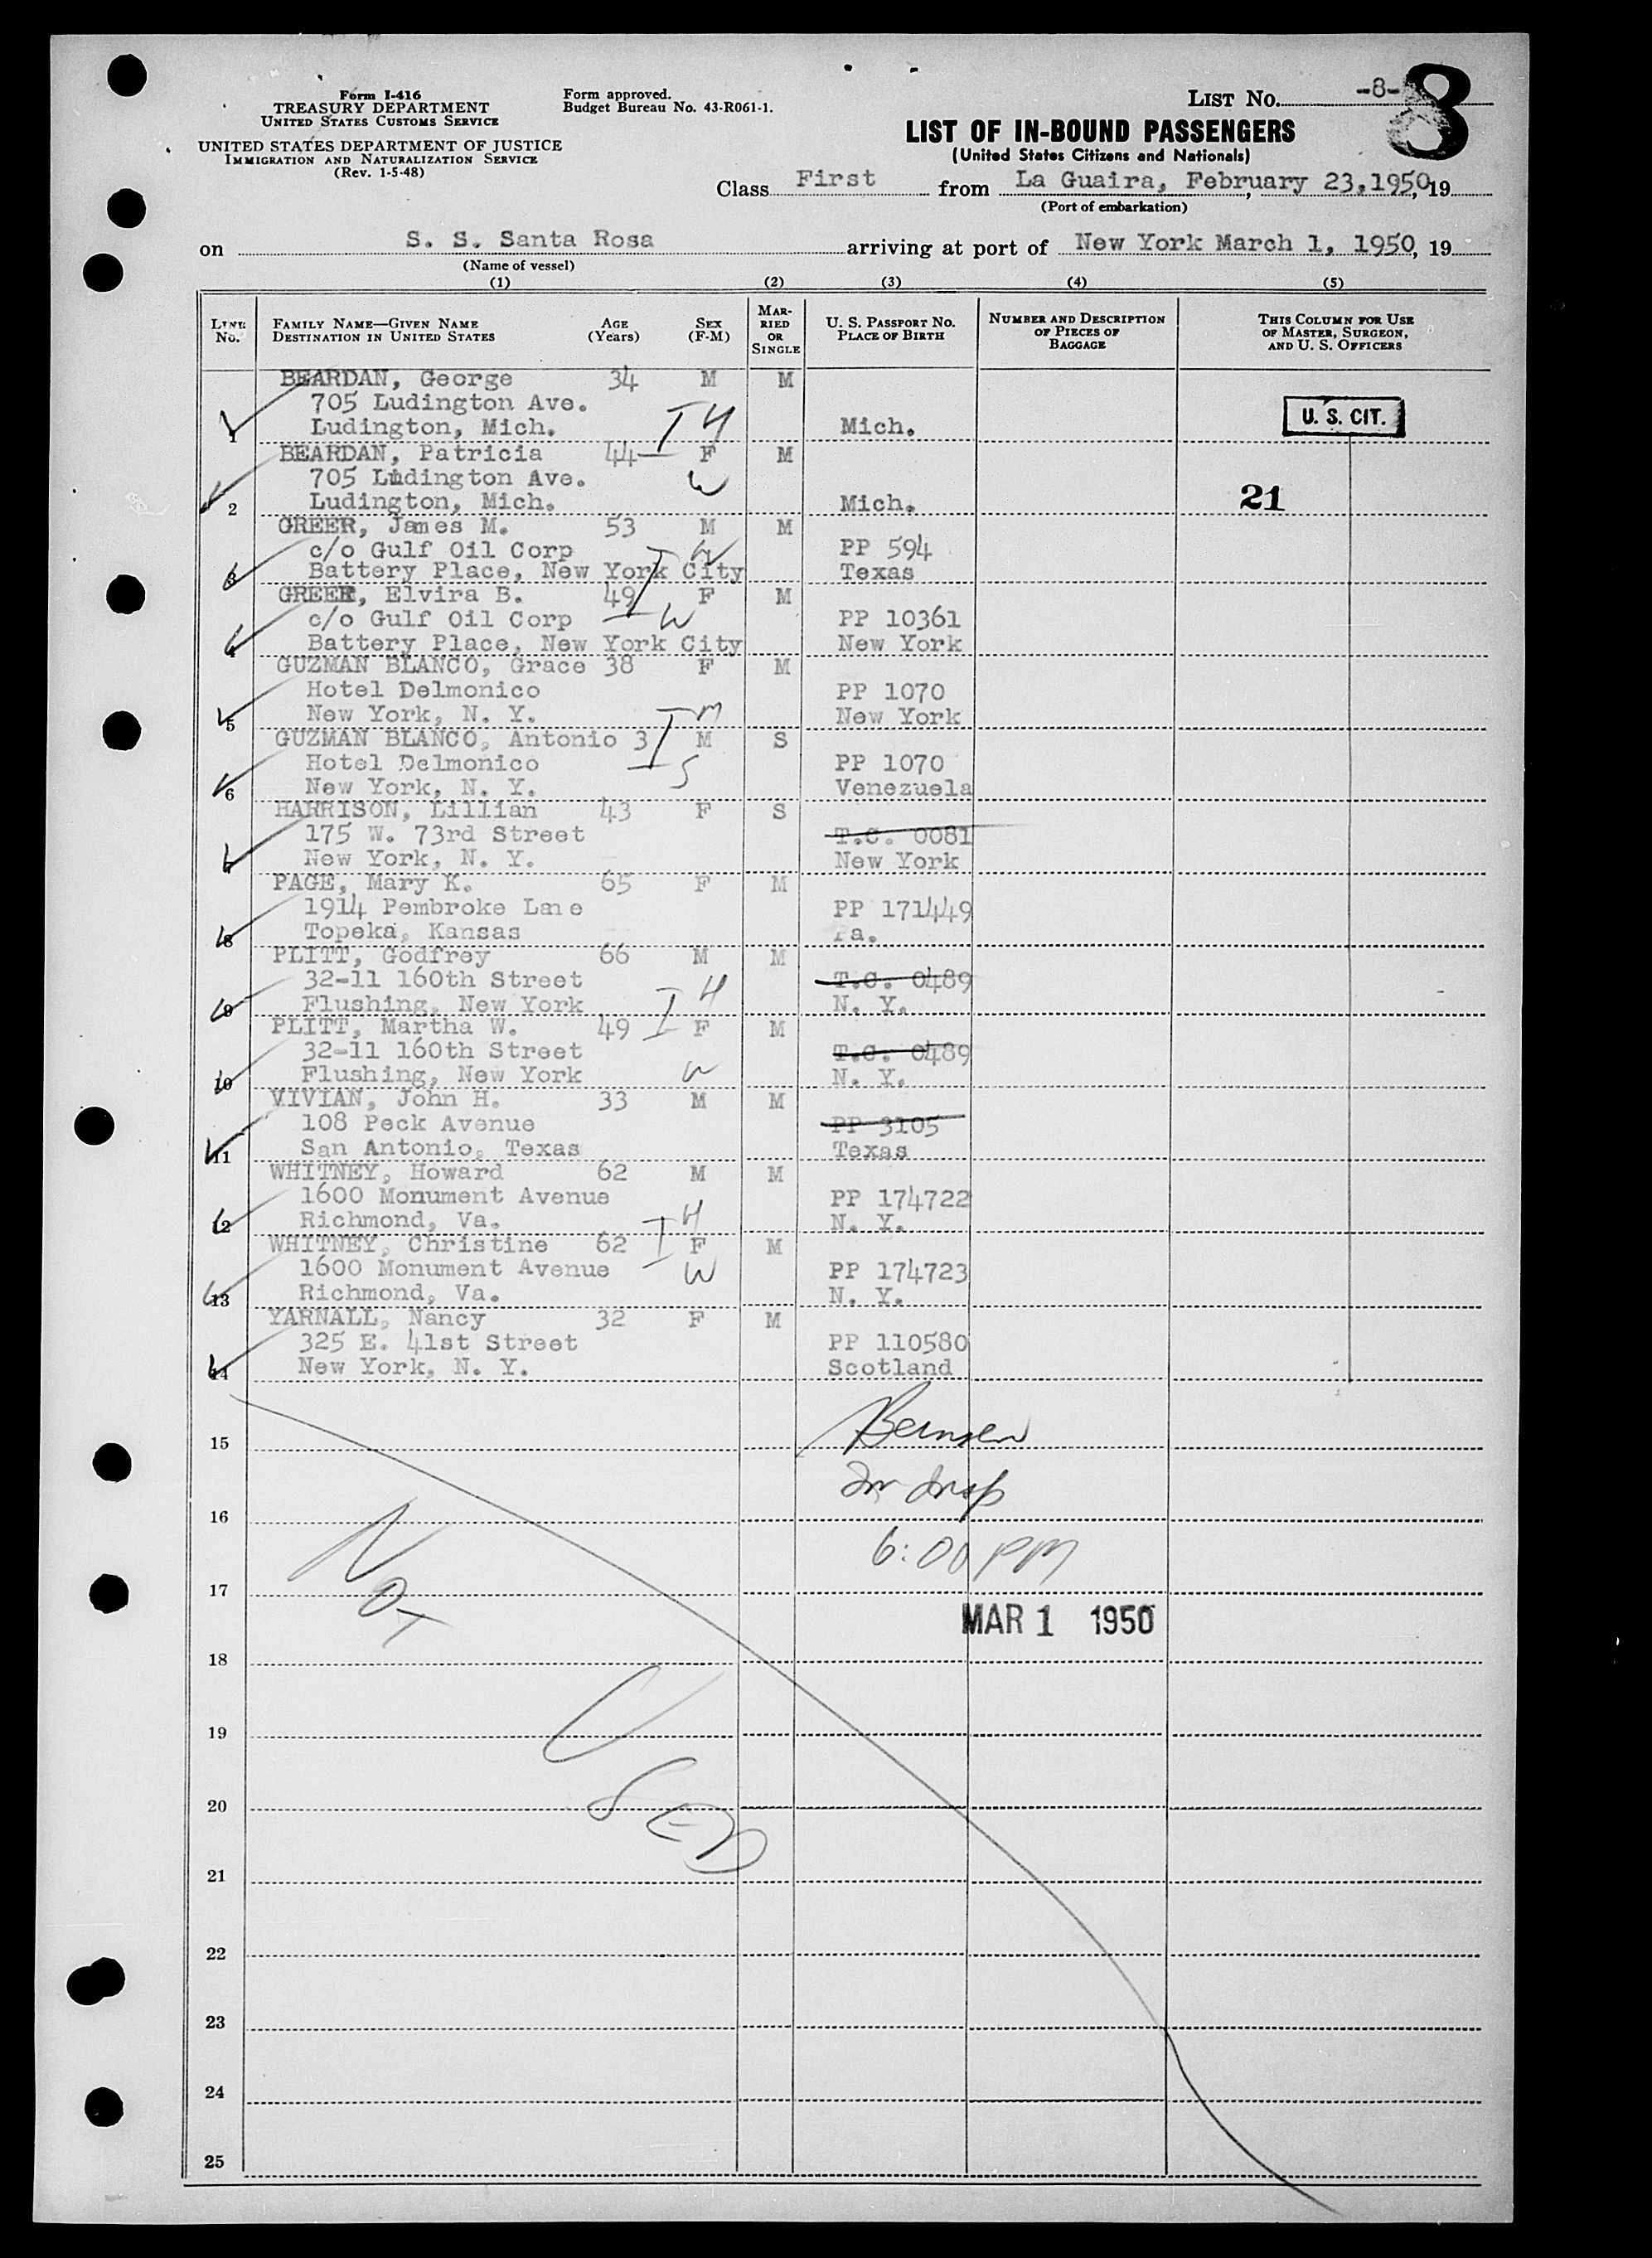 Form I-416
TREASURY DEPARTMENT
UNITED STATES CUSTOMS SERVICE
UNITED STATES DEPARTMENT OF JUSTICE
IMMIGRATION AND NATURALIZATION SERVICE
(Rev. 1-5-48)
Form approved.
Budget Bureau No. 43-R061-1.
LIST No. -8-
8
LIST OF IN-BOUND PASSENGERS
(United States Citizens and Nationals)
Class First from La Guaira, February 23,1950, 19
(Port of embarkation)
on S. S. Santa Rosa arriving at port of New York March 1, 1950, 19
(Name of vessel)
(1) (2) (3) (4) (5)
LINE No. FAMILY NAME—GIVEN NAME DESTINATION IN UNITED STATES AGE (Years) SEX (F-M) MARRIED OR SINGLE U. S. PASSPORT NO. PLACE OF BIRTH NUMBER AND DESCRIPTION OF PIECES OF BAGGAGE THIS COLUMN FOR USE OF MASTER, SURGEON, AND U. S. OFFICERS
BEARDAN, George 34 M M
705 Ludington Ave.
1 Ludington, Mich. H Mich. U. S. CIT.
BEARDAN, Patricia 44 F M
705 Ludington Ave. W
2 Ludington, Mich. Mich. 21
GREER, James M. 53 M M
c/o Gulf Oil Corp PP 594
3 Battery Place, New York City Texas
GREER, Elvira B. 49 F M
c/o Gulf Oil Corp W PP 10361
4 Battery Place, New York City New York
GUZMAN BLANCO, Grace 38 F M
Hotel Delmonico PP 1070
5 New York, N. Y. M New York
GUZMAN BLANCO, Antonio 3 M S
Hotel Delmonico S PP 1070
6 New York, N. Y. Venezuela
HARRISON, Lillian 43 F S
175 W. 73rd Street T.C. 0081
7 New York, N. Y. New York
PAGE, Mary K. 65 F M
1914 Pembroke Lane PP 171449
8 Topeka, Kansas Pa.
PLITT, Godfrey 66 M M
32-11 160th Street H T.C. 0489
9 Flushing, New York N. Y.
PLITT, Martha W. 49 F M
32-11 160th Street T.C. 0489
10 Flushing, New York W N. Y.
VIVIAN, John H. 33 M M
108 Peck Avenue PP 3105
11 San Antonio, Texas Texas
WHITNEY, Howard 62 M M
1600 Monument Avenue PP 174722
12 Richmond, Va. H N. Y.
WHITNEY, Christine 62 F M
1600 Monument Avenue W PP 174723
13 Richmond, Va. N. Y.
YARNALL, Nancy 32 F M
325 E. 41st Street PP 110580
14 New York, N. Y. Scotland
15
16
6:00 PM
17
NOT
MAR 1 1950
18
19
USED
20
21
22
23
24
25